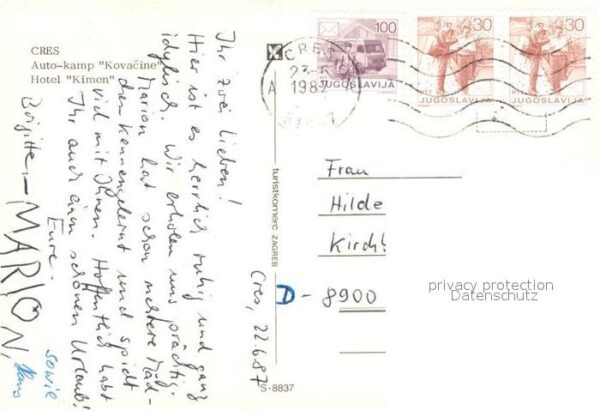 CRES
Auto-kamp "Kovačine"
Hotel "Kimen"
Cres, 22.6.87
Ihr zwei Lieben!
Hier ist es herrlich ruhig und ganz
idyllisch. Wir erholen uns prächtig.
Marion hat schon mehrere Mäd-
chen kennengelernt und spielt
viel mit Ihnen. Hoffentlich habt
Ihr auch einen schönen Urlaub!
Eure
Brigitte, MARION,
sowie
Hans
turistkomerc ZAGREB
S-8837
100
JUGOSLAVIJA
30
JUGOSLAVIJA
30
JUGOSLAVIJA
CRES
1987
Frau
Hilde
Kirchb
D - 8900
privacy protection
Datenschutz